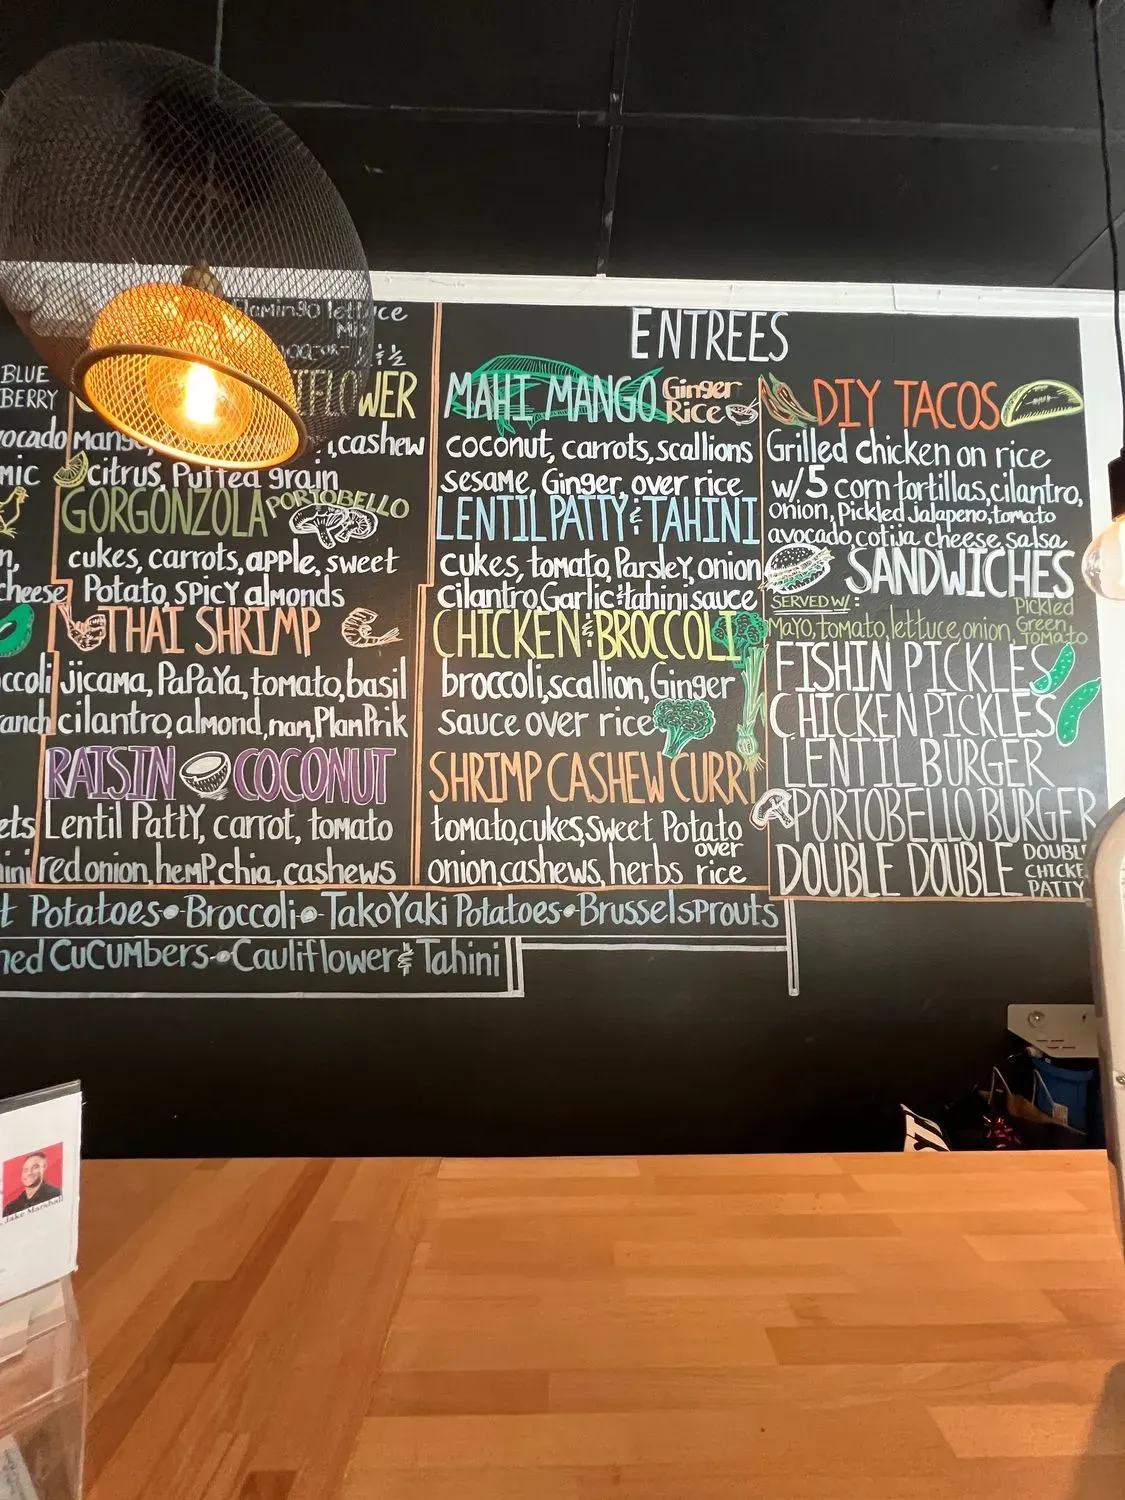 BLUE
BERRY
mic
cheese
flamingo lettuce
Mix
& 1/2
FLOWER
cashew
citrus, Puffed grain
GORGONZOLA PORTOBELLO
cukes, carrots, apple, sweet
Potato, SPICY almonds
THAI SHRIMP
jicama, PaPaYa, tomato, basil
cilantro, almond, nam, PlamPrik
RAISIN COCONUT
Lentil PattY, carrot, tomato
red onion, hemp, chia, cashews
ENTREES
MAHI MANGO Ginger
Rice
coconut, carrots, scallions
sesame, Ginger, over rice
LENTIL PATTY & TAHINI
cukes, tomato, Parsley, onion
cilantro, Garlic & tahini sauce
CHICKEN & BROCCOLI
broccoli, scallion, Ginger
sauce over rice
SHRIMP CASHEW CURRY
tomato, cukes, sweet Potato
onion, cashews, herbs over rice
DIY TACOS
Grilled chicken on rice
w/ 5 corn tortillas, cilantro,
onion, Pickled Jalapeno, tomato
avocado, cotija cheese, salsa
SANDWICHES
SERVED W/:
Mayo, tomato, lettuce, onion, Pickled
Green
Tomato
FISHIN PICKLES
CHICKEN PICKLES
LENTIL BURGER
PORTOBELLO BURGER
DOUBLE DOUBLE DOUBLE
CHICKE
PATTY
t Potatoes • Broccoli • TakoYaki Potatoes • Brussel sprouts
ned CUCUMbers • Cauliflower & Tahini
Jake Marshall